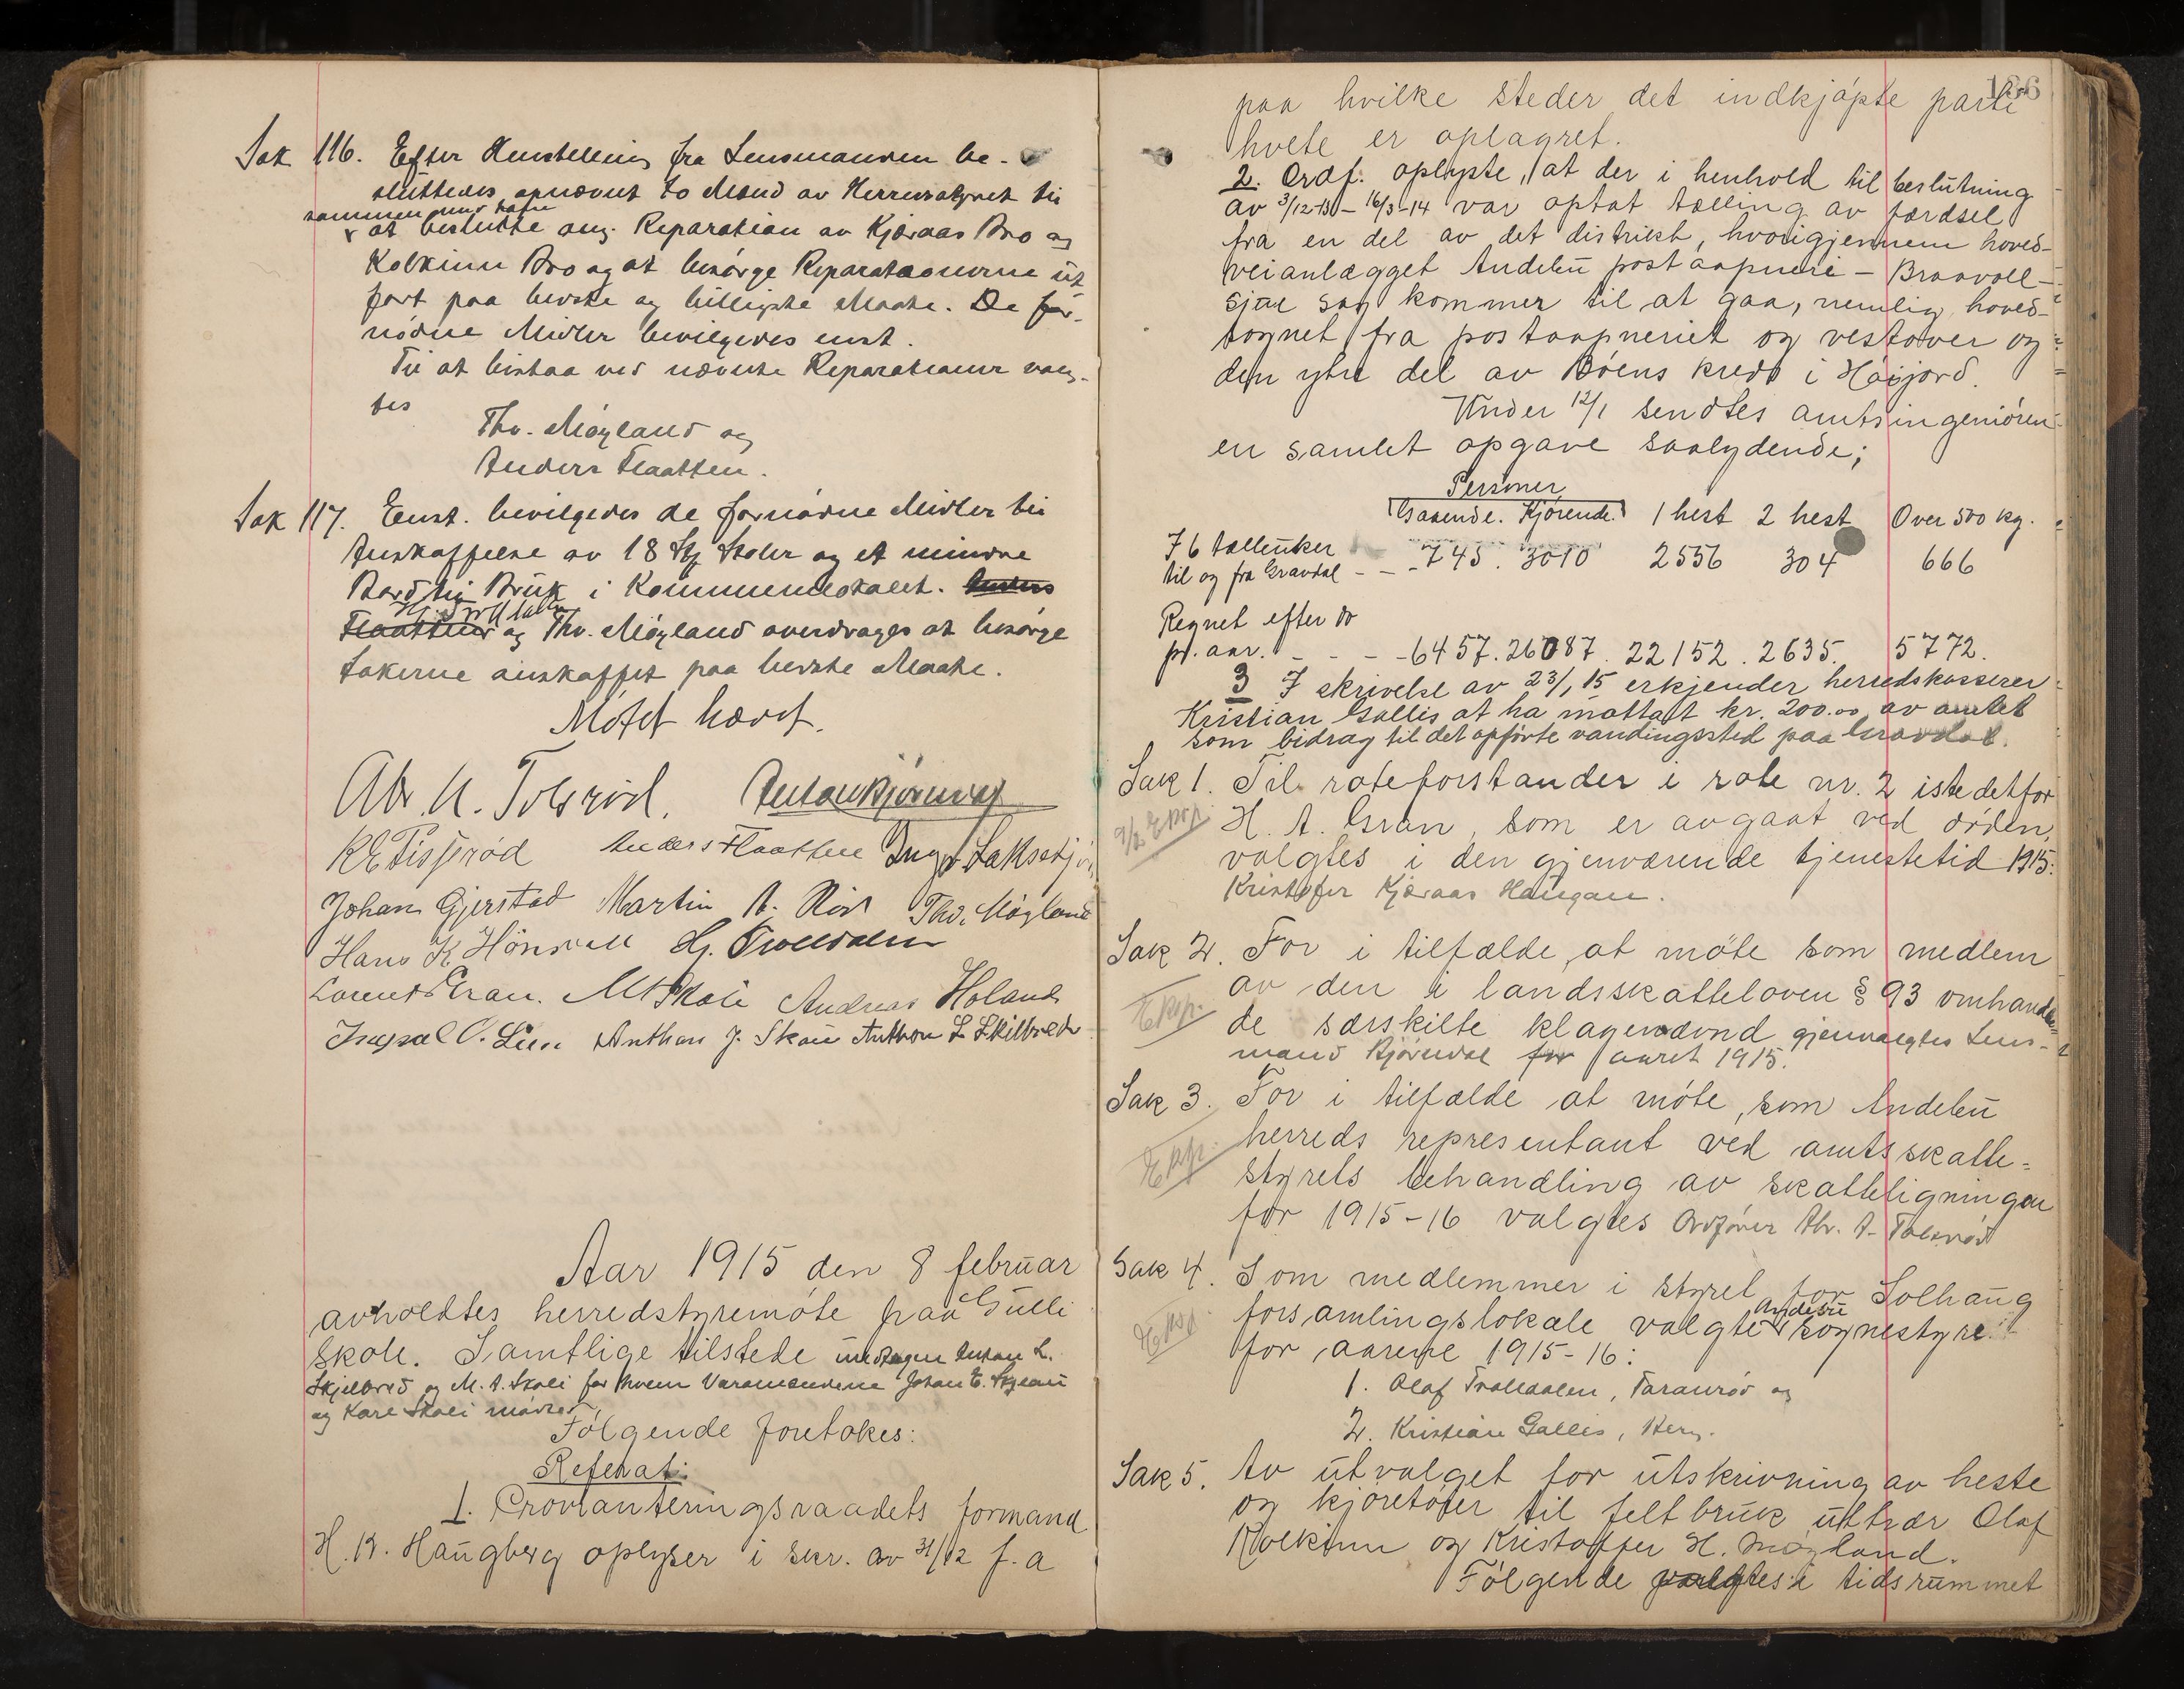 Sak 116. Efter Henstilling fra Lensmanden be-
sluttedes opnævnt to Mænd av Herredsstyret til
sammen med ham
at beslutte ang. Reparation av Kjæraas Bro og
Kolkinn Bro og at besørge Reparationerne ut
ført paa bedste og billigste Maate. De for-
nødne Midler bevilgedes enst.
Til at bistaa ved nævnte Reparationer valg-
tes
Thv. Møyland og
Anders Flaatten.
Sak 117. Enst. bevilgedes de fornødne Midler til
Anskaffelse av 18 Stk Stoler og et mindre
Bord til Bruk i Kommunelokalet. Anders
Hj. Trolldalen
Flaatten og Thv. Møyland overdrages at besørge
sakerne anskaffet paa bedste Maate.
Møtet hævet.
Abr. A. Tolsrød. Anton Bjørndal
K E Tisjørød Anders Flaatten Ingv. Laksesjø
Johan Gjerstad Martin A. Rød Thv. Møyland
Hans K Hönsvall Hj. Trolldalen
Laurits Gran. M A Skoli Andreas Holand
Ingval O. Lie. Anthon J. Skau Anthon L Skilbred
Aar 1915 den 8 februar
avholdtes herredstyremøte paa Gulli
skole. Samtlige tilstede undtagen Anton L.
Skjelbred og M. A. Skoli for hvem Varamændene Johan E. Skjelau
og Karl Skoli møtte.
Følgende foretokes:
Referat:
1. Provianteringsraadets formand
H. K. Haugberg oplyser i skr. av 31/12 f. a
186
paa hvilke steder det indkjøpte parti
hvete er oplagret.
2. Ordf. oplyste, at der i henhold til beslutning
av 3/12-13 - 16/3-14 var optat tælling av færdsel
fra en del av det distrikt, hvorigjennem hoved-
veianlægget Andebu postaapneri - Braavoll-
sjøe sag kommer til at gaa, nemlig hoved-
sognet fra postaapneriet og vestover og
den ytre del av Böens kreds i Høijord.
Under 12/1 sendtes amtsingeniören
en samlet opgave saalydende;
Personer
Gaaende. Kjørende. 1 hest 2 hest Over 500 kg.
76 tælleuker
til og fra Gravdal - - - 745. 3010 2556 304 666
Regnet efter do
pr. aar. - - - - 6457. 26087. 22152. 2635. 5772.
3 I skrivelse av 23/1 15 erkjender herredskasserer
Kristian Gallis at ha mottatt kr. 200.00 av amtet
som bidrag til det opførte vandingssted paa Gravdal.
Sak 1. Til roteforstander i rote nr. 2 istedetfor
9/2 Exp.
H. A. Gran, som er avgaat ved døden,
valgtes i den gjenværende tjenestetid 1915:
Kristofer Kjæraas Haugan.
Sak 2. For i tilfælde at møte som medlem
Exp.
av den i landsskatteloven § 93 omhandle-
de særskilte klagenævnd gjenvalgtes Lens-
mand Bjørndal for aaret 1915.
Sak 3. For i tilfælde at møte, som Andebu
Exp.
herreds representant ved amtsskatte-
styrets behandling av skatteligningen
for 1915-16 valgtes Ordfører Abr. A. Tolsrød
Sak 4. Som medlemmer i styret for Solhaug
Exp.
forsamlingslokale valgte Andebu sognestyre
for aarene 1915-16:
1. Olaf Trolldalen, Taranrød og
2. Kristian Gallis, Berg.
Sak 5. Av utvalget for utskrivning av heste
og kjøretøier til feltbruk uttrær Olaf
Kolkinn og Kristoffer H. Møyland.
Følgende valgtes i tidsrummet